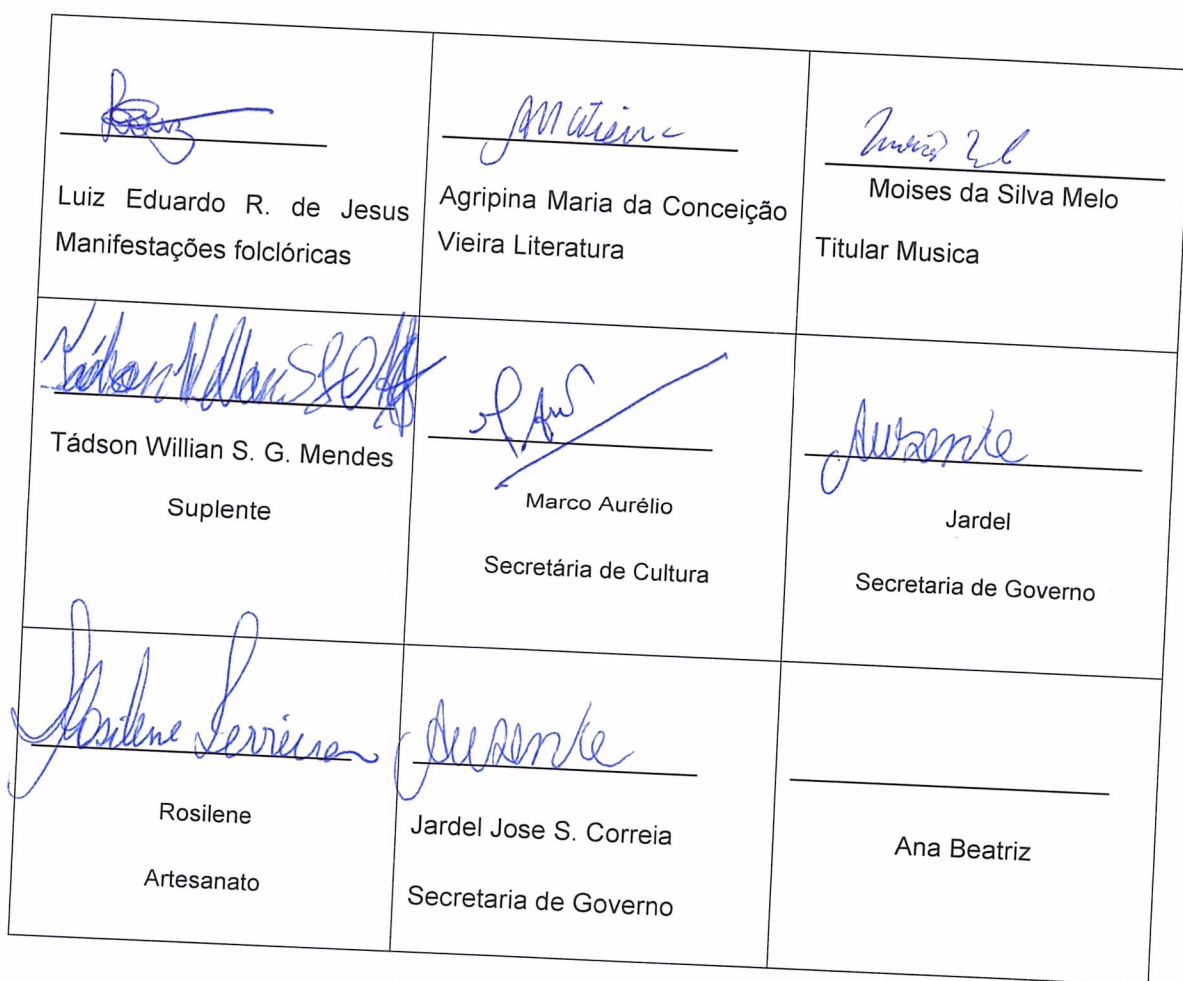 AM Vieira
Luiz Eduardo R. de Jesus
Manifestações folclóricas
Agripina Maria da Conceição
Vieira Literatura
Moises da Silva Melo
Titular Musica
Tádson Willian S. G. Mendes
Suplente
Marco Aurélio
Secretária de Cultura
Ausente
Jardel
Secretaria de Governo
Rosilene Ferreira
Rosilene
Artesanato
Ausente
Jardel Jose S. Correia
Secretaria de Governo
Ana Beatriz